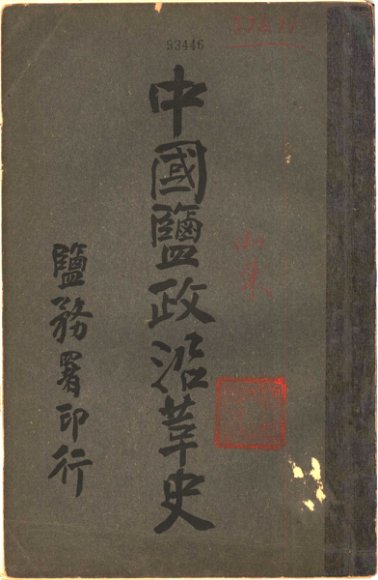 93446
中國鹽政沿革史
山東
鹽務署印行